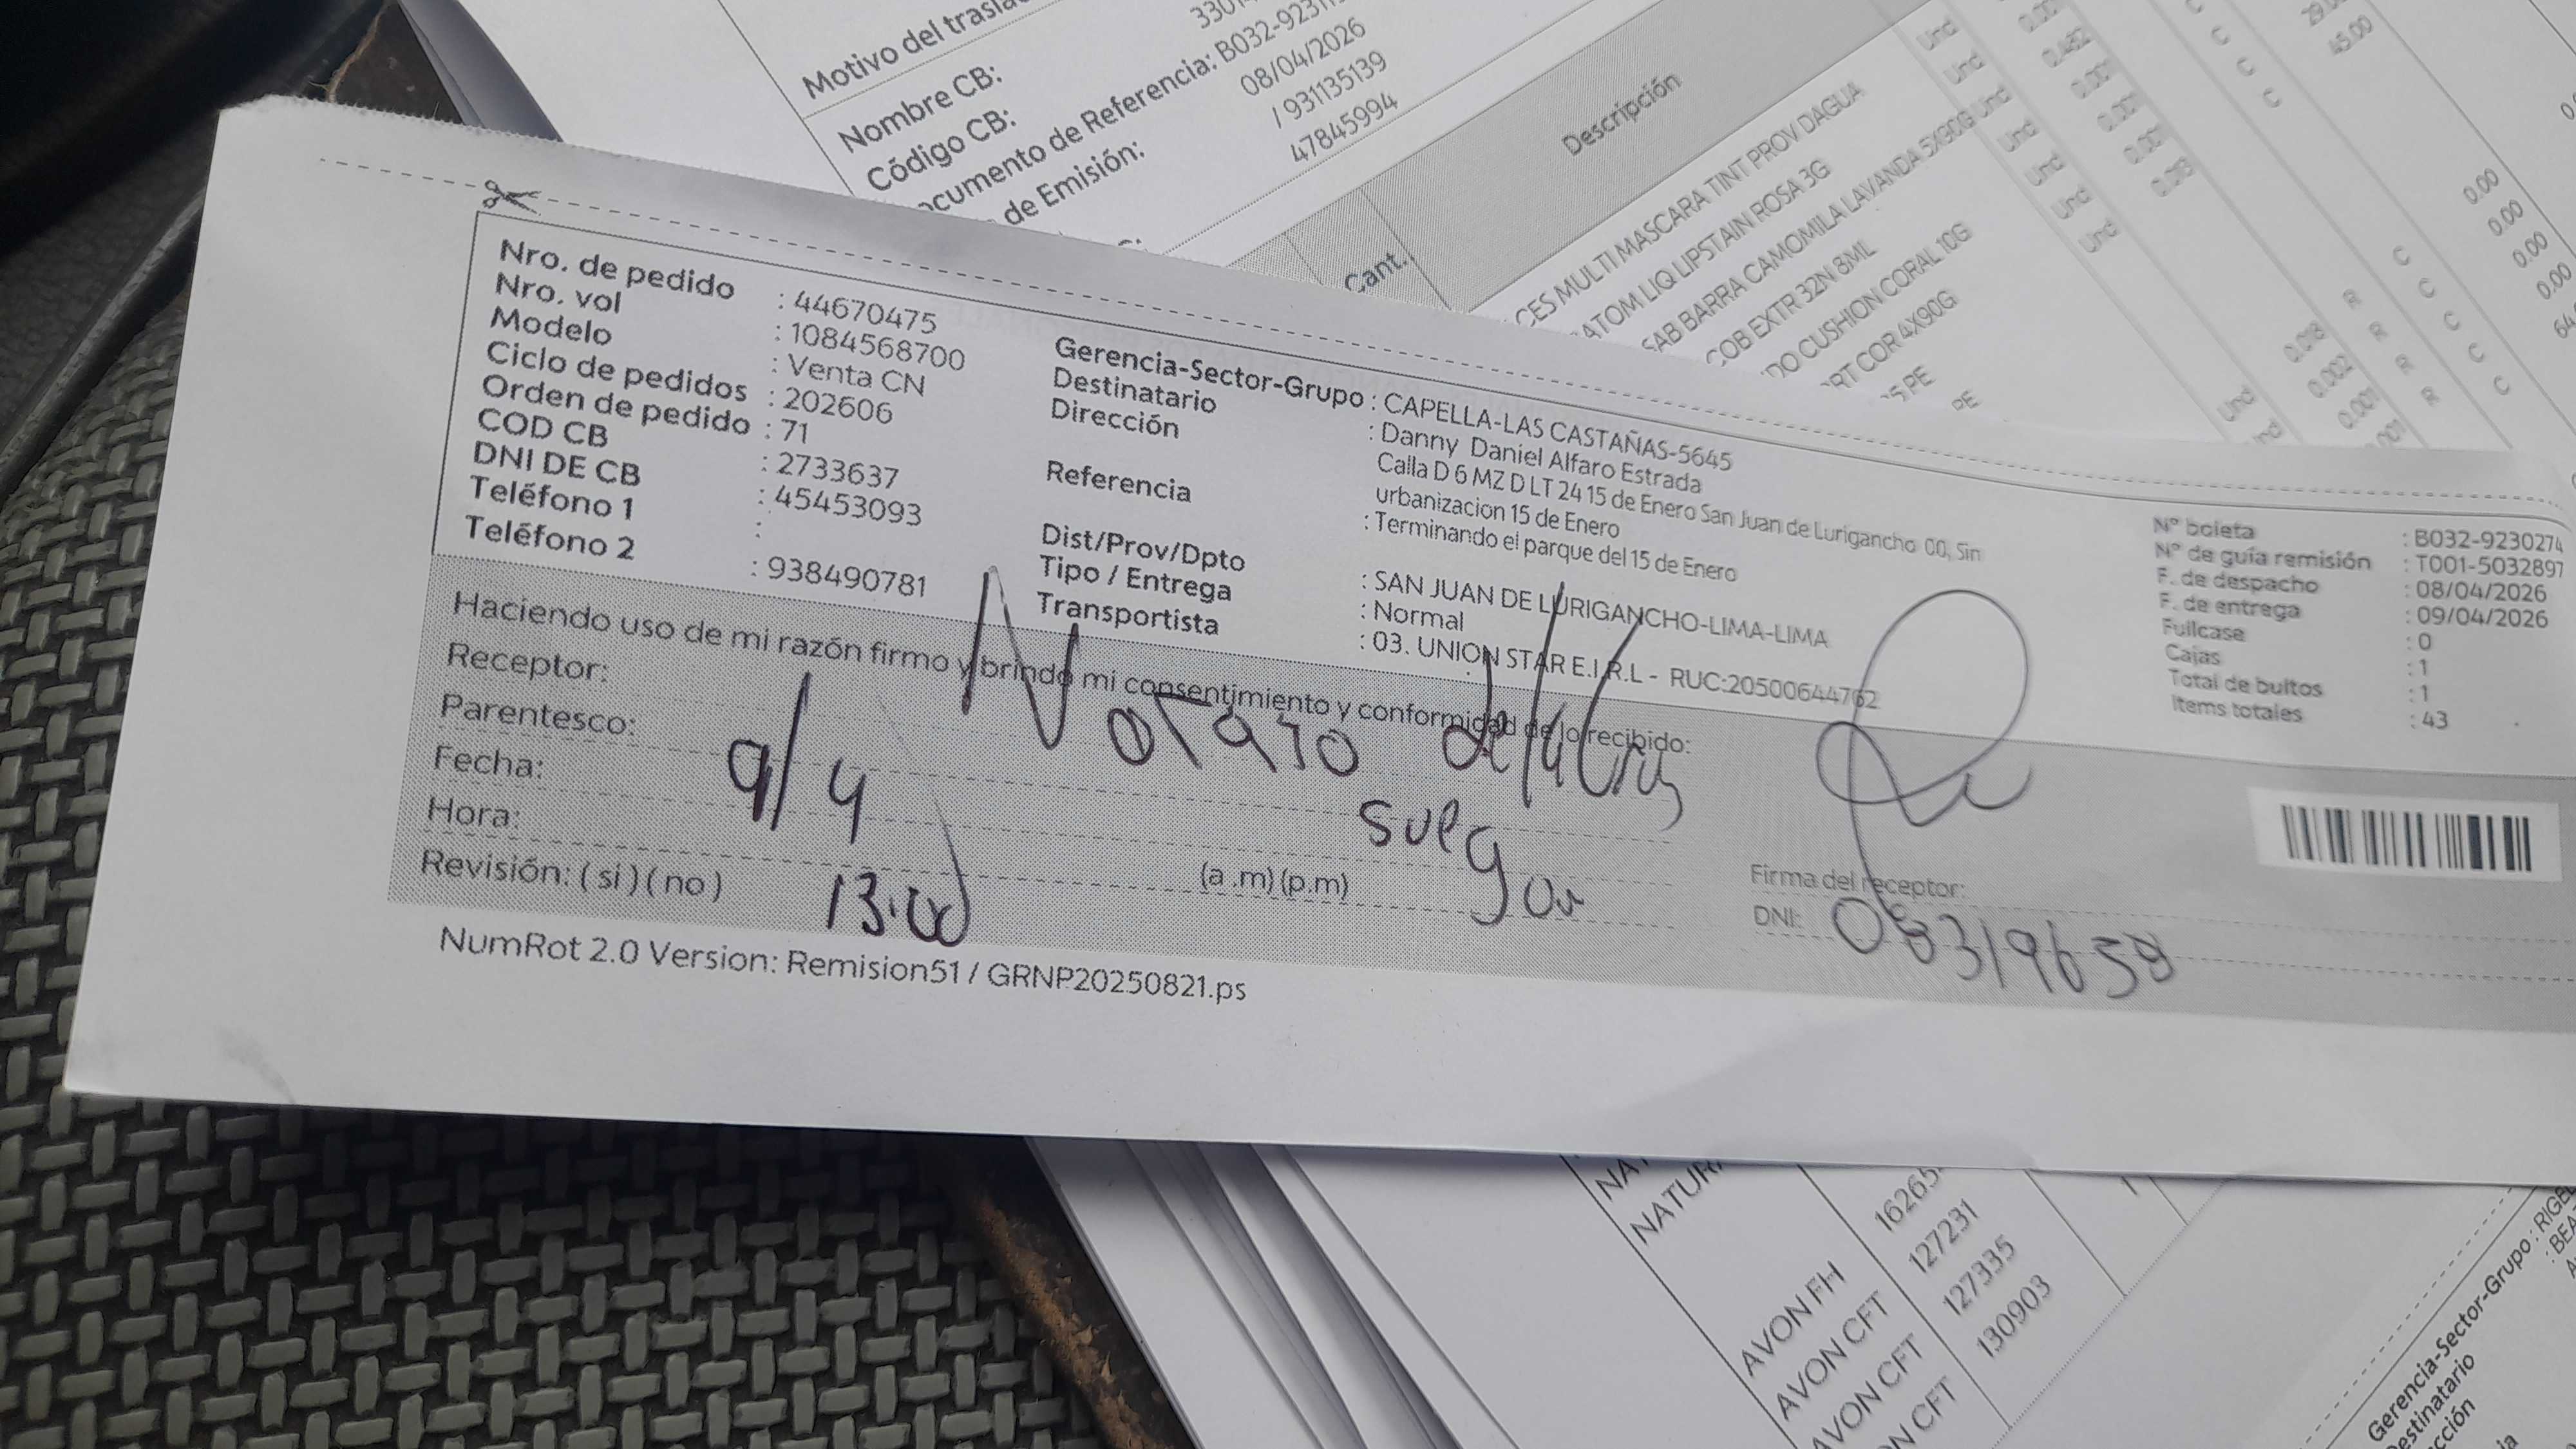 Motivo del trasla
Nombre CB:
Código CB:
ocumento de Referencia: B032-9231
de Emisión: 08/04/2026
/ 931135139
47845994
Cant.
Descripción
CES MULTI MASCARA TINT PROV DAGUA
ATOM LIQ LIPSTAIN ROSA 3G
SAB BARRA CAMOMILA LAVANDA 5X90G Und
COB EXTR 32N 8ML
DO CUSHION CORAL 10G
RT COR 4X90G
PE
PE
Nro. de pedido : 44670475
Nro. vol : 1084568700
Modelo : Venta CN
Ciclo de pedidos : 202606
Orden de pedido : 71
COD CB : 2733637
DNI DE CB : 45453093
Teléfono 1 :
Teléfono 2 : 938490781
Gerencia-Sector-Grupo : CAPELLA-LAS CASTAÑAS-5645
Destinatario : Danny Daniel Alfaro Estrada
Dirección Calla D 6 MZ D LT 24 15 de Enero San Juan de Lurigancho 00, Sin
urbanizacion 15 de Enero
Referencia : Terminando el parque del 15 de Enero
Dist/Prov/Dpto : SAN JUAN DE LURIGANCHO-LIMA-LIMA
Tipo / Entrega : Normal
Transportista : 03. UNION STAR E.I.R.L - RUC:20500644762
N° boleta : B032-9230274
N° de guía remisión : T001-5032897
F. de despacho : 08/04/2026
F. de entrega : 09/04/2026
Fullcase : 0
Cajas : 1
Total de bultos : 1
Items totales : 43
Haciendo uso de mi razón firmo y brindo mi consentimiento y conformidad de lo recibido:
Receptor:
Parentesco:
Fecha: 9/4
Hora: 13:00 (a .m) (p.m)
Revisión: ( si ) ( no )
Firma del receptor:
DNI:
NumRot 2.0 Version: Remision51 / GRNP20250821.ps
NATUR
AVON FH 16265
AVON CFT 127231
AVON CFT 127335
N CFT 130903
Gerencia-Sector-Grupo : RIGE
estinatario : BEA
cción